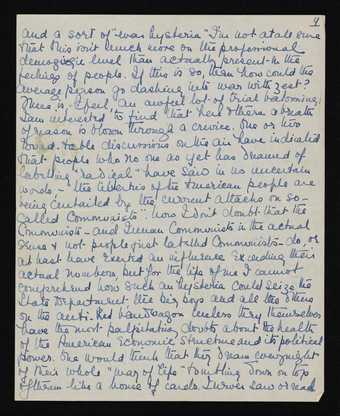 4
and a sort of "war hysteria" I'm not at all sure
that this isn't much more on the professional
demogogic level than actually present in the
feelings of people. If this is so, then how could the
average person go dashing into war with zest?
There is, I feel, an awful lot of trial ballooning.
I am interested to find that here & there a breath
of reason is blown through a crevice. One or two
round-table discussions on the air have indicated
that people who no one as yet has dreamed of
labelling "radical" have said in no uncertain
words, - the liberties of the American people are
being curtailed by the current attacks on so-
called "Communists". Now I don't doubt that the
Communists - and I mean Communists in the actual
sense & not people just labelled Communists - do, or
at least have exerted an influence exceeding their
actual numbers, but for the life of me I cannot
comprehend how such an hysteria could seize the
State Department, the big boys and all the others
on the anti-Red bandwagon unless they themselves
have the most palpitating doubts about the health
of the American Economic Structure and its political
power. One would think that they dream every night
of their whole "way of life" tumbling down on top
of them like a house of cards. I never saw or read